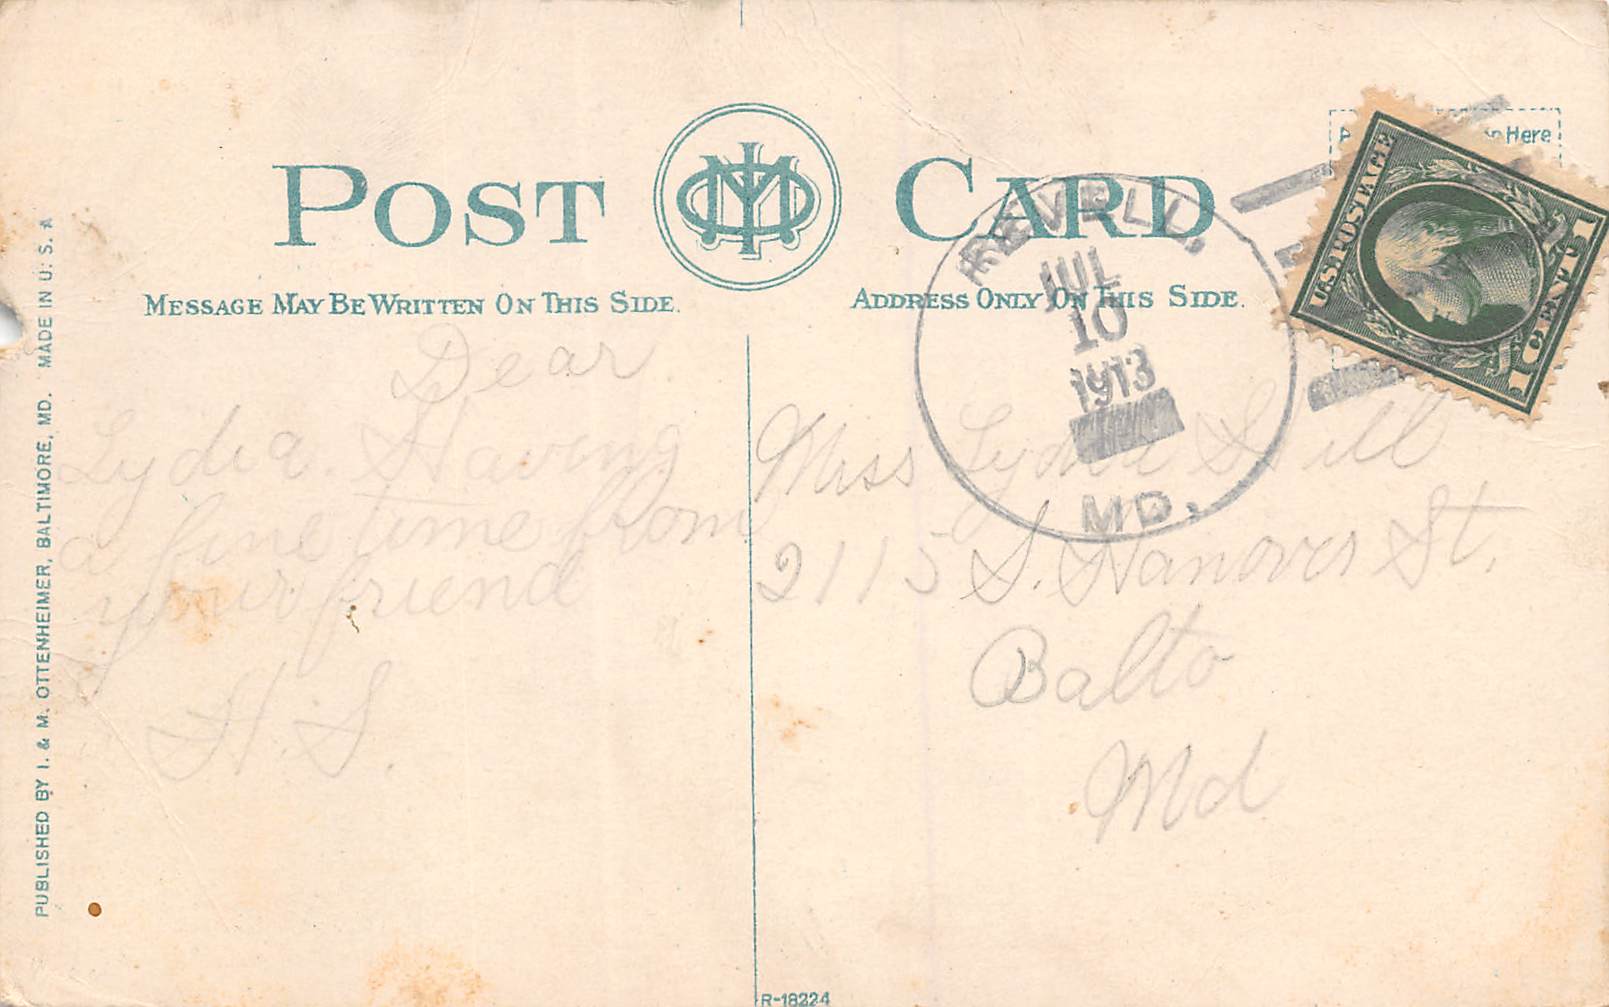 POST CARD
MESSAGE MAY BE WRITTEN ON THIS SIDE.
ADDRESS ONLY ON THIS SIDE.
Here
U.S. POSTAGE
1 CENT 1
REVELL.
JUL
10
1913
MD.
Dear
Lydia. Having
a fine time from
your friend
H. S.
Miss Lydia Hill
2115 S. Hanover St.
Balto
Md
PUBLISHED BY I. & M. OTTENHEIMER, BALTIMORE, MD. MADE IN U. S. A
R-18224